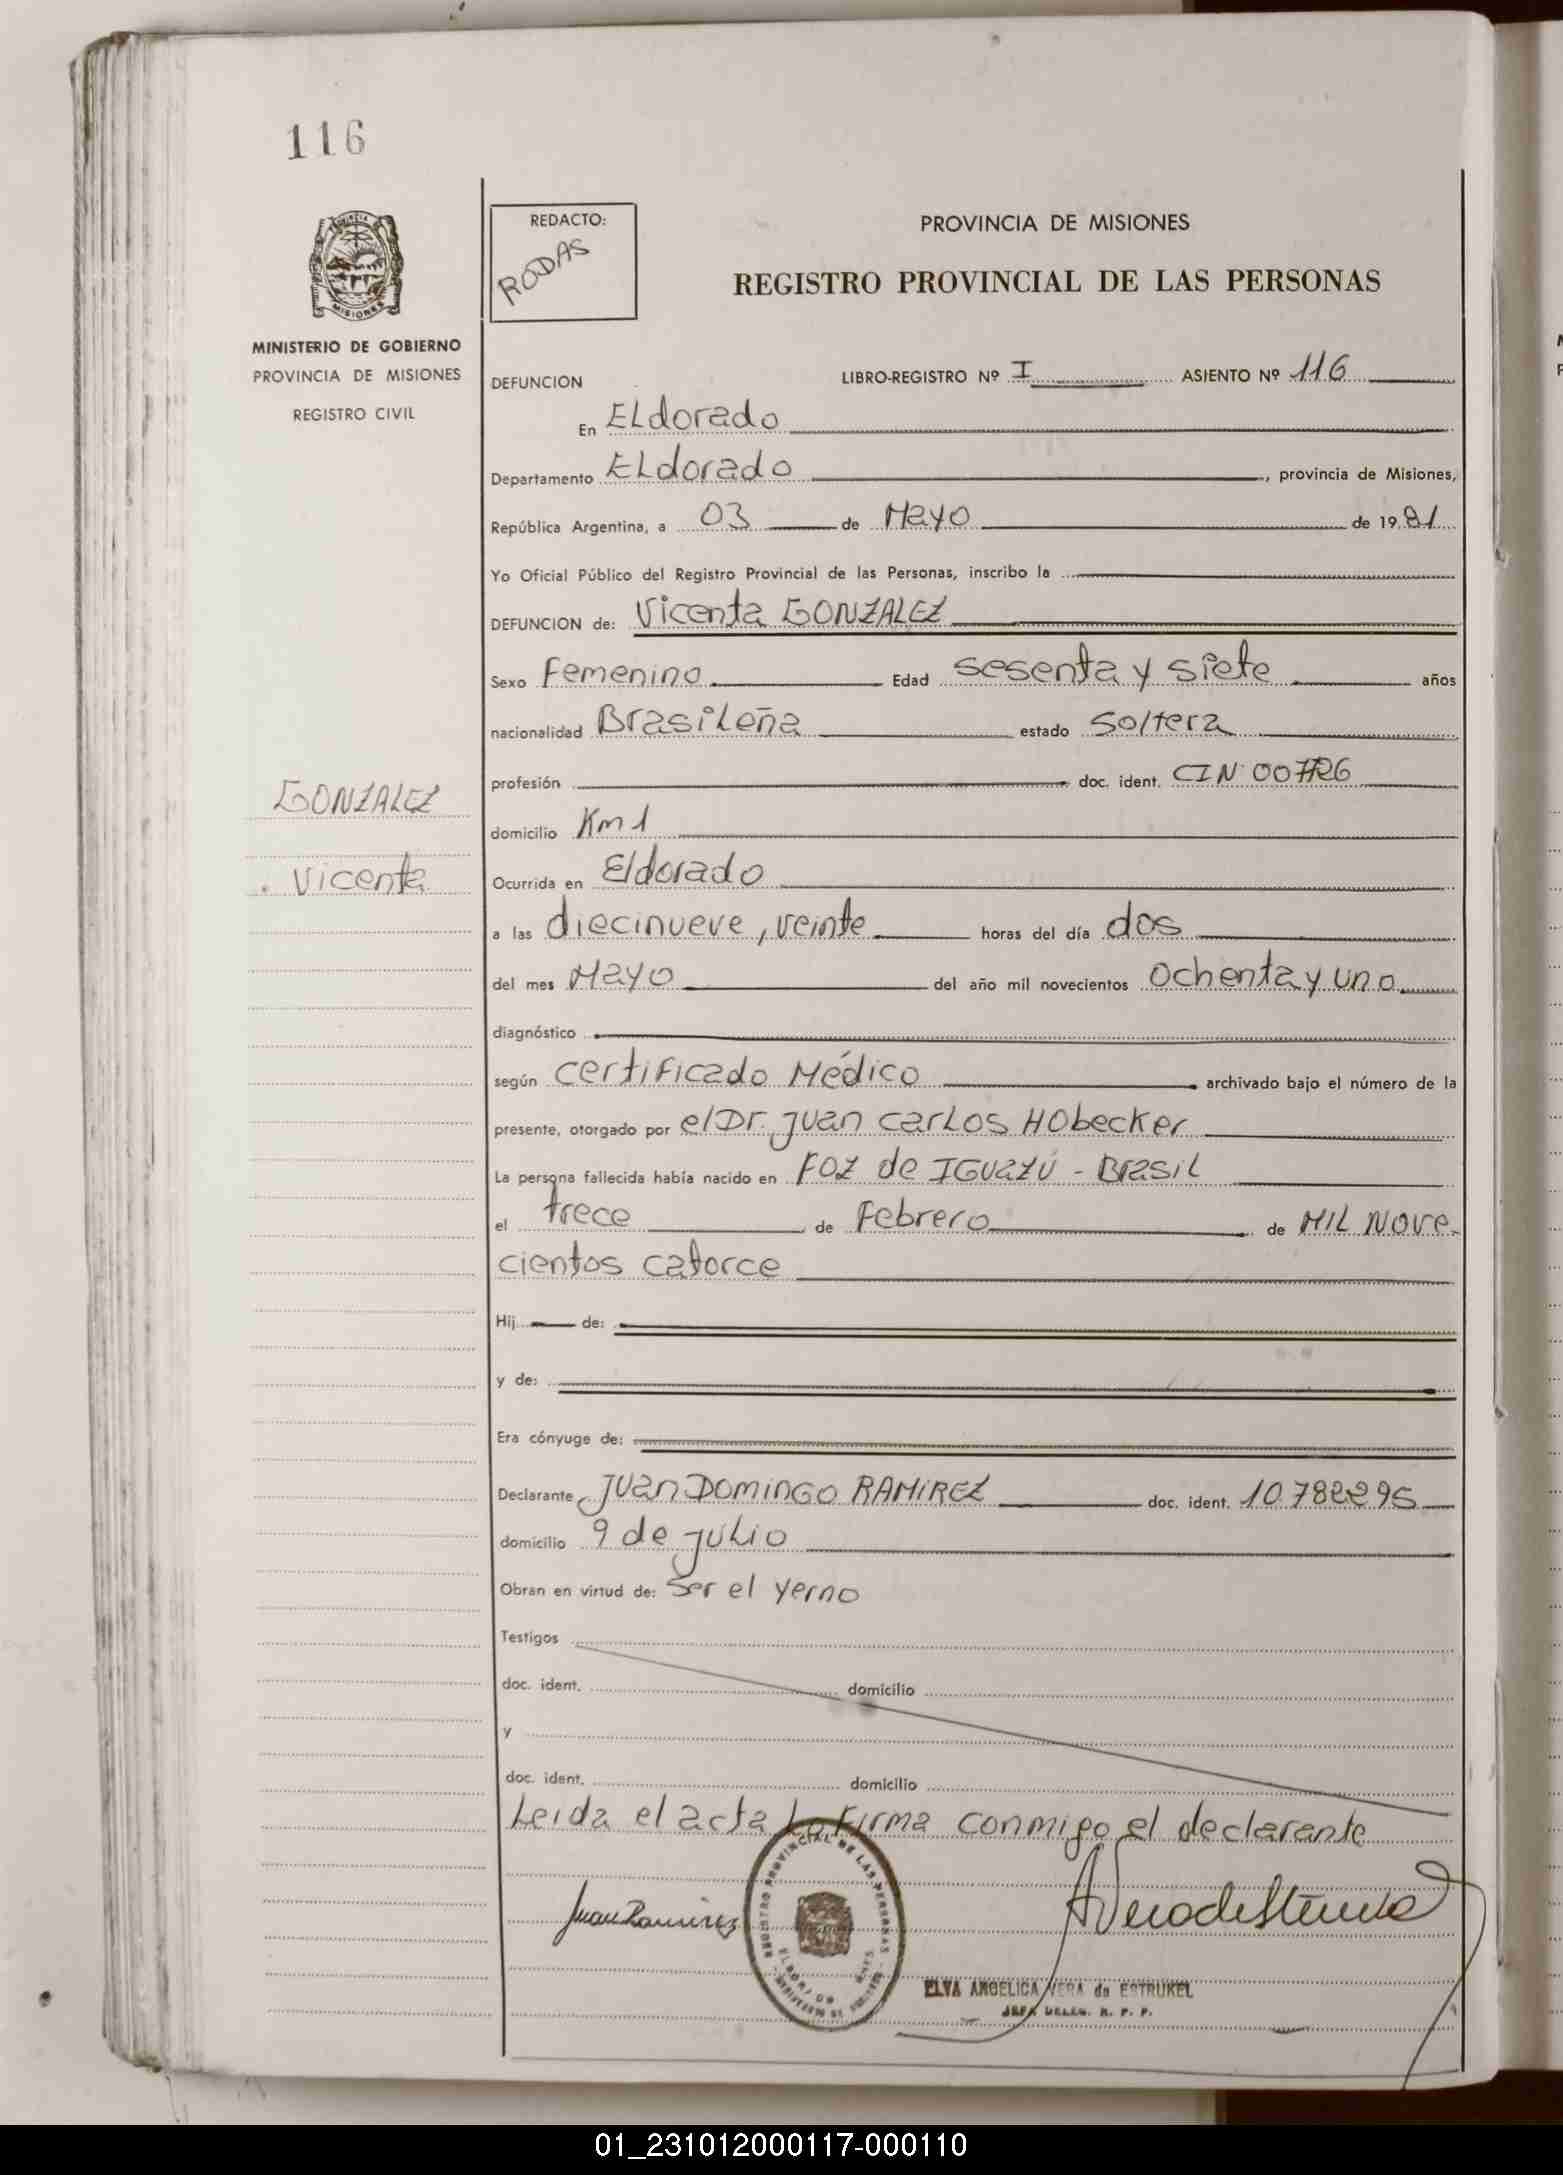 116
PROVINCIA DE MISIONES
REDACTO:
RODAS
PROVINCIA DE MISIONES
REGISTRO PROVINCIAL DE LAS PERSONAS
MINISTERIO DE GOBIERNO
PROVINCIA DE MISIONES
REGISTRO CIVIL
DEFUNCION LIBRO-REGISTRO Nº I ASIENTO Nº 116
En ELdorado
Departamento ELdorado, provincia de Misiones,
República Argentina, a 03 de Mayo de 1981
Yo Oficial Público del Registro Provincial de las Personas, inscribo la
DEFUNCION de: Vicenta GONZALEZ
Sexo Femenino Edad sesenta y siete años
nacionalidad Brasileña estado soltera
profesión doc. ident. CIN
GONZALEZ
Vicenta
domicilio Km 1
Ocurrida en Eldorado
a las diecinueve, veinte horas del día dos
del mes Mayo del año mil novecientos ochenta y uno
diagnóstico
según certificado Médico archivado bajo el número de la
presente, otorgado por el Dr. Juan Carlos HObecker
La persona fallecida había nacido en FOZ de IGUAZÚ - Brasil
el trece de Febrero de MIL Nove-
cientos catorce
Hij de:
y de:
Era cónyuge de:
Declarante JUAN DOMINGO RAMIREZ doc. ident. 10.782295
domicilio 9 de julio
Obran en virtud de: ser el yerno
Testigos
doc. ident. domicilio
y
doc. ident. domicilio
Leida el acta La Firma conmigo el declarante
Juan Ramirez
REGISTRO PROVINCIAL DE LAS PERSONAS
ELDORADO
ELVA ANGELICA VERA de ESTRUKEL
JEFA DELEG. R. P. P.
01_231012000117-000110